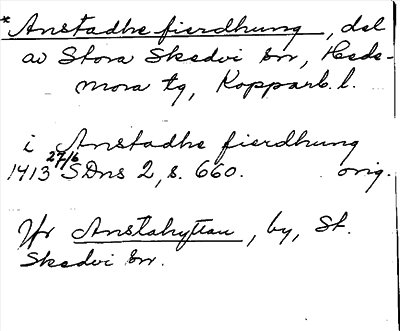 *Anstadhe fierdhung, del
av Stora Skedvi sn, Hede-
mora tg, Kopparb. l.
i Anstadhe fierdhung
1413 27/6 SDns 2, s. 660. orig.
Jfr Anstahyttan, by, St.
Skedvi sn.